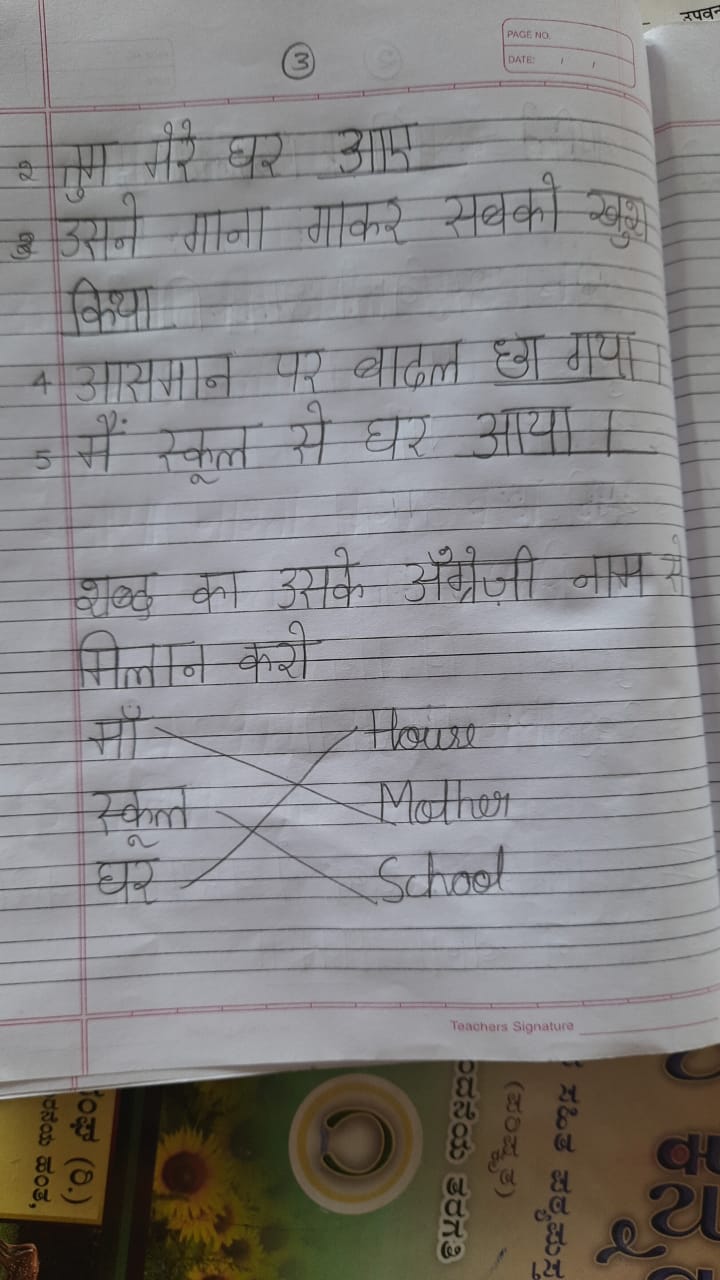 उपवन
PAGE NO.
DATE: / /
3
२ तुम मेरे घर आए
3 उसने गाना गाकर सबको खुश
किया
4 आसमान पर बादल छा गया
5 मैं स्कूल से घर आया ।
शब्द का उसके अँग्रेज़ी नाम से
मिलान करो
माँ House
स्कूल Mother
घर School
Teachers Signature